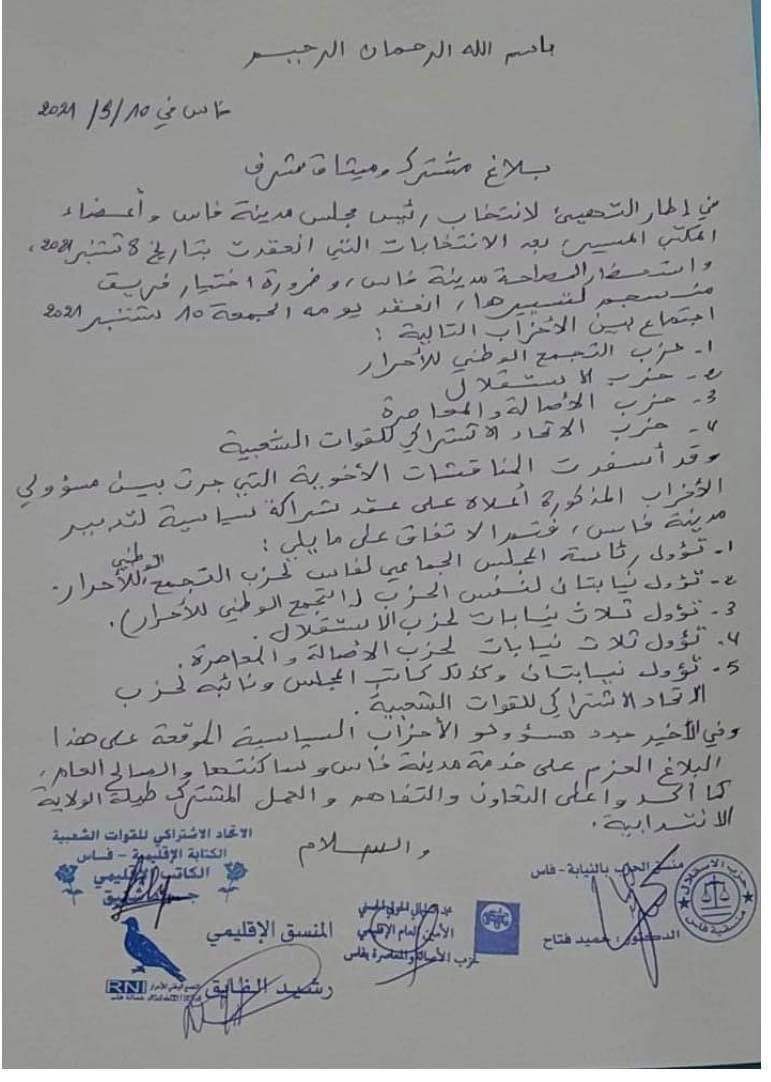 باسم الله الرحمان الرحيم
فاس في 10/9/2021
بلاغ مشترك وميثاق شرف
في إطار التهيئ لانتخاب رئيس مجلس مدينة فاس وأعضاء
المكتب المسير، بعد الانتخابات التي انعقدت بتاريخ 8 شتنبر 2021،
واستحضارا لمصلحة مدينة فاس، وضرورة اختيار فريق
منسجم لتسييرها، انعقد يومه الجمعة 10 شتنبر 2021
اجتماع بين الأحزاب التالية :
1- حزب التجمع الوطني للأحرار
2- حزب الاستقلال
3- حزب الأصالة والمعاصرة
4- حزب الاتحاد الاشتراكي للقوات الشعبية
وقد أسفرت المناقشات الأخوية التي جرت بين مسؤولي
الأحزاب المذكورة أعلاه على عقد شراكة سياسية لتدبير
مدينة فاس، فتم الاتفاق على ما يلي :
1- تؤول رئاسة المجلس الجماعي لفاس لحزب التجمع الوطني للأحرار.
2- تؤول نيابتان لنفس الحزب (التجمع الوطني للأحرار).
3- تؤول ثلاث نيابات لحزب الاستقلال.
4- تؤول ثلاث نيابات لحزب الأصالة والمعاصرة.
5- تؤول نيابتان وكذلك كاتب المجلس ونائبه لحزب
الاتحاد الاشتراكي للقوات الشعبية.
وفي الأخير جدد مسؤولو الأحزاب السياسية الموقعة على هذا
البلاغ العزم على خدمة مدينة فاس وساكنتها والصالح العام،
كما أكدوا على التعاون والتفاهم والعمل المشترك طيلة الولاية
الانتدابية.
والسلام
الاتحاد الاشتراكي للقوات الشعبية
الكتابة الإقليمية - فاس
الكاتب الإقليمي
منسق الحزب بالنيابة - فاس
الدكتور : حميد فتاح
حزب الاستقلال
الأمين العام الإقليمي
حزب الأصالة والمعاصرة بفاس
المنسق الإقليمي
رشيد الفايق
RNI